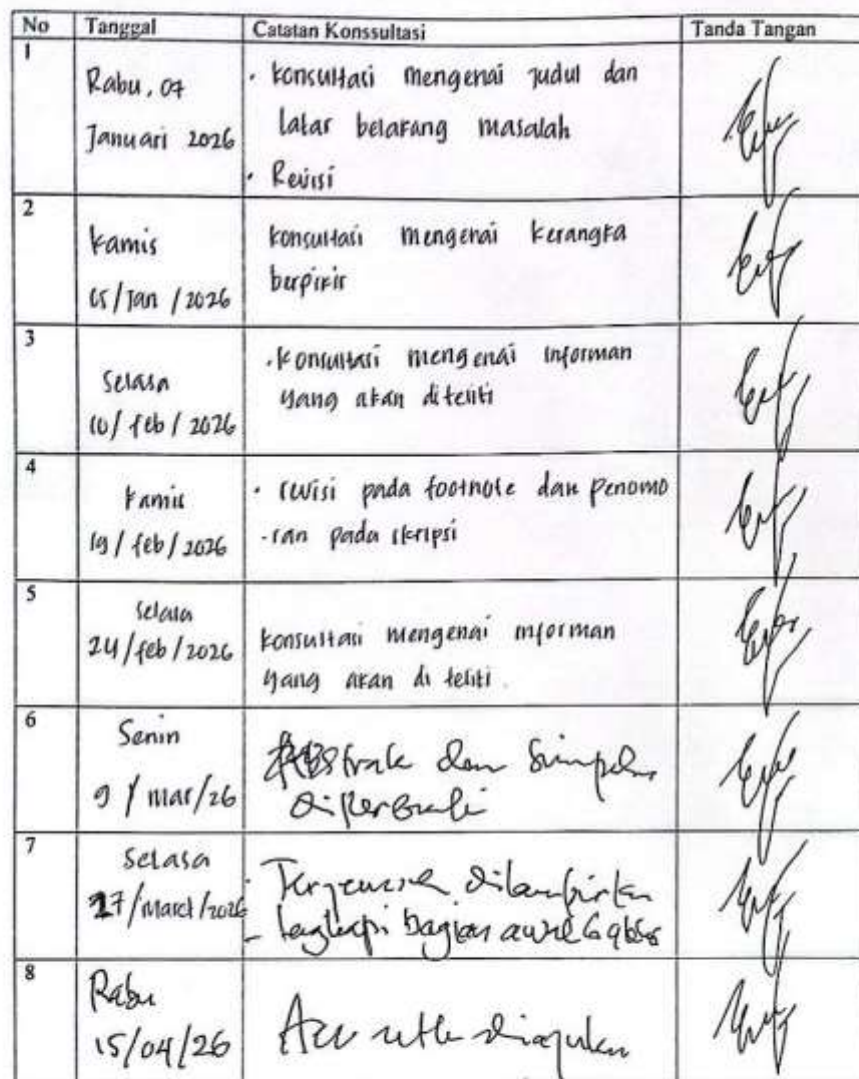 No Tanggal Catatan Konssultasi Tanda Tangan
1
Rabu, 07
Januari 2026
· konsultasi mengenai judul dan
latar belakang masalah
· Revisi
2
kamis
15/Jan/2026
konsultasi mengenai kerangka
berpikir
3
Selasa
10/feb/2026
· konsultasi mengenai informan
yang akan diteliti
4
kamis
19/feb/2026
· revisi pada footnote dan penomo
-ran pada skripsi
5
selasa
24/feb/2026
konsultasi mengenai informan
yang akan di teliti.
6
Senin
9/mar/26
Abstrak dan Simpulan
diperbaiki
7
Selasa
17/maret/2026
· dilampirkan
- lengkapi bagian awal
8
Rabu
15/04/26
Acc untuk diajukan